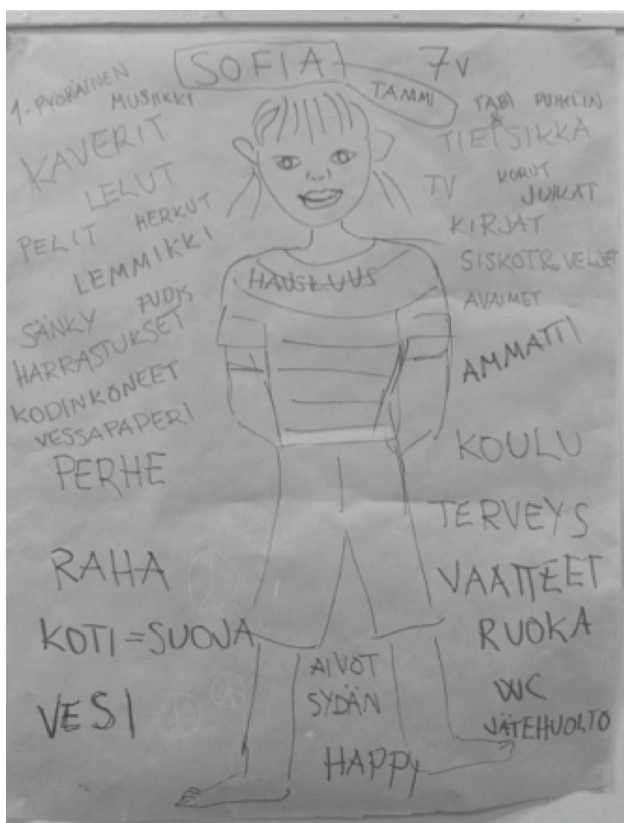 SOFIA
7v.
TAMMI
1-PYÖRÄINEN
MUSIIKKI
KAVERIT
LELUT
PELIT HERKUT
LEMMIKKI
SÄNKY FUDIS
HARRASTUKSET
KODINKONEET
VESSAPAPERI
PERHE
RAHA
KOTI = SUOJA
VESI
HAUSKUUS
AIVOT
SYDÄN
HAPPY
PUHELIN
TV KORUT
JUHLAT
KIRJAT
SISKOT & VELJET
AVAIMET
AMMATTI
KOULU
TERVEYS
VAATTEET
RUOKA
WC
JÄTEHUOLTO